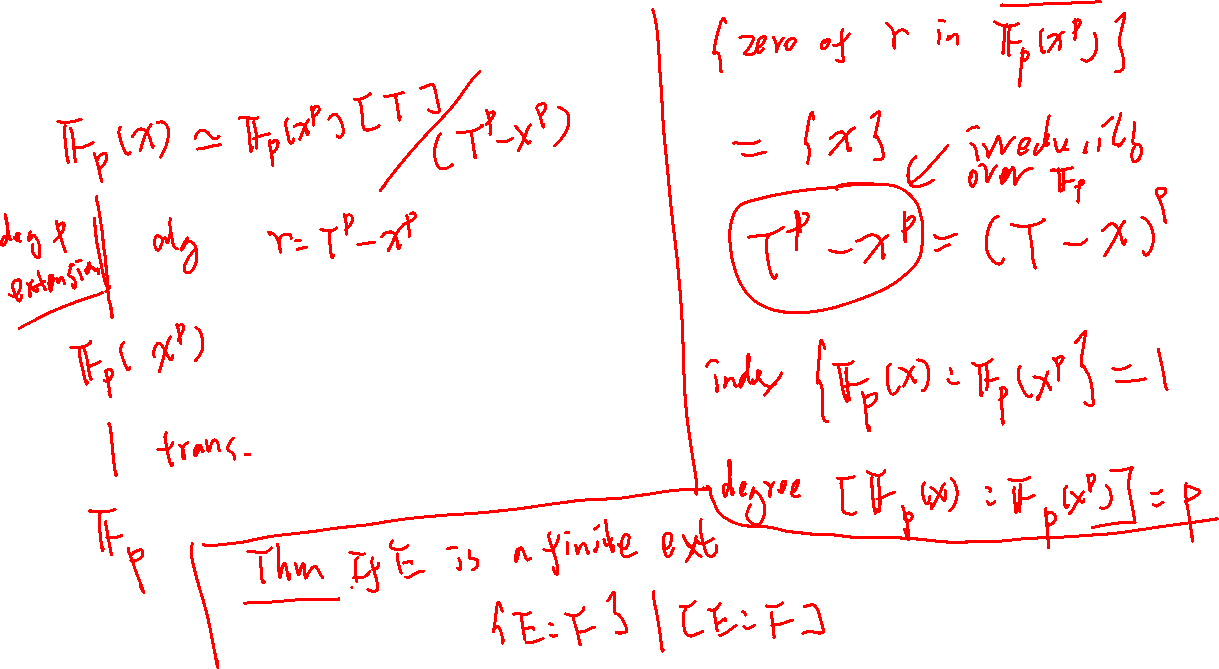 𝔽_p(x) ≃ 𝔽_p(x^p)[T]/(T^p-x^p)
deg p extension
alg r = T^p - x^p
𝔽_p(x^p)
| trans.
𝔽_p
{zero of r in \overline{𝔽_p(x^p)}}
= {x}
over 𝔽_p
T^p - x^p = (T - x)^p
index {𝔽_p(x) : 𝔽_p(x^p} = 1
degree [𝔽_p(x) : 𝔽_p(x^p)] = p
Thm If E is a finite ext
{E:F} | [E:F]